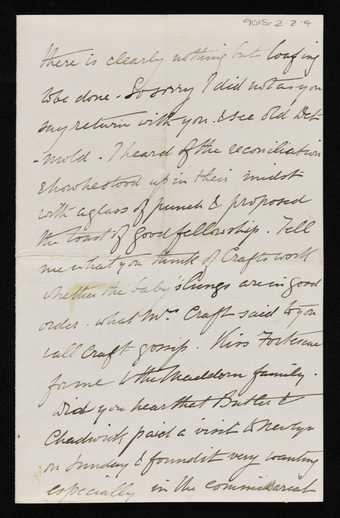 9015-2-2-9
there is clearly nothing but loafing
to be done. So sorry I did not as you
say return with you & see old Det
-mold. I heard of the reconciliation
& how he stood up in their midst
with a glass of punch & proposed
the toast of good fellowship. Tell
me what you think of Crafts work
whether the baby's lungs are in good
order. What Mrs Craft said to you
& all Craft gossip. Kiss Fortescue
for me & the Maddern family.
Did you hear that Butler &
Chadwick paid a visit to Newlyn
on Sunday & found it very wanting
especially in the commissariat